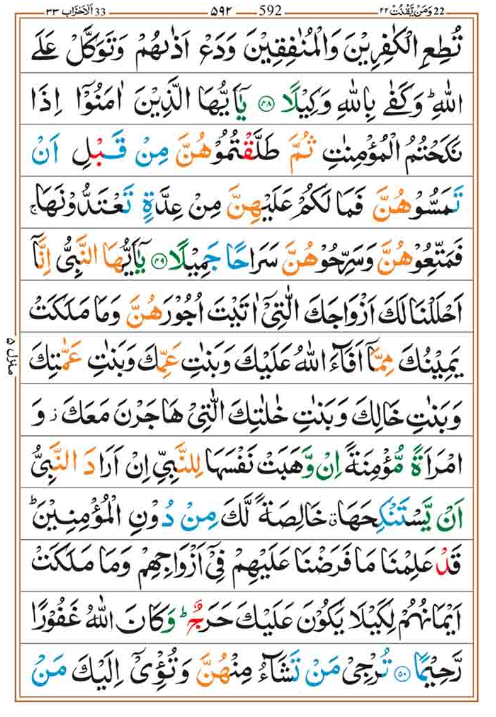 22 وَمَنْ يَّقْنُتْ ٢٢ 592 ٥٩٢ 33 اَلْاَحْزَاب ٣٣
تُطِعِ الْكٰفِرِيْنَ وَالْمُنٰفِقِيْنَ وَدَعْ اَذٰىهُمْ وَتَوَكَّلْ عَلَى
اللّٰهِ ؕ وَكَفٰى بِاللّٰهِ وَكِيْلًا ﴿۴۸﴾ يٰۤاَيُّهَا الَّذِيْنَ اٰمَنُوْۤا اِذَا
نَكَحْتُمُ الْمُؤْمِنٰتِ ثُمَّ طَلَّقْتُمُوْهُنَّ مِنْ قَبْلِ اَنْ
تَمَسُّوْهُنَّ فَمَا لَكُمْ عَلَيْهِنَّ مِنْ عِدَّةٍ تَعْتَدُّوْنَهَا ۚ
فَمَتِّعُوْهُنَّ وَسَرِّحُوْهُنَّ سَرَاحًا جَمِيْلًا ﴿۴۹﴾ يٰۤاَيُّهَا النَّبِىُّ اِنَّاۤ
اَحْلَلْنَا لَكَ اَزْوَاجَكَ الّٰتِىْۤ اٰتَيْتَ اُجُوْرَهُنَّ وَمَا مَلَكَتْ
يَمِيْنُكَ مِمَّاۤ اَفَآءَ اللّٰهُ عَلَيْكَ وَبَنٰتِ عَمِّكَ وَبَنٰتِ عَمّٰتِكَ
وَبَنٰتِ خَالِكَ وَبَنٰتِ خٰلٰتِكَ الّٰتِىْ هَاجَرْنَ مَعَكَ ؗ وَ
امْرَاَةً مُّؤْمِنَةً اِنْ وَّهَبَتْ نَفْسَهَا لِلنَّبِىِّ اِنْ اَرَادَ النَّبِىُّ
اَنْ يَّسْتَنْكِحَهَا ۗ خَالِصَةً لَّكَ مِنْ دُوْنِ الْمُؤْمِنِيْنَ ؕ
قَدْ عَلِمْنَا مَا فَرَضْنَا عَلَيْهِمْ فِىْۤ اَزْوَاجِهِمْ وَمَا مَلَكَتْ
اَيْمَانُهُمْ لِكَيْلَا يَكُوْنَ عَلَيْكَ حَرَجٌ ؕ وَكَانَ اللّٰهُ غَفُوْرًا
رَّحِيْمًا ﴿۵۰﴾ تُرْجِىْ مَنْ تَشَآءُ مِنْهُنَّ وَتُؤْىْۤ اِلَيْكَ مَنْ
منزل ۵